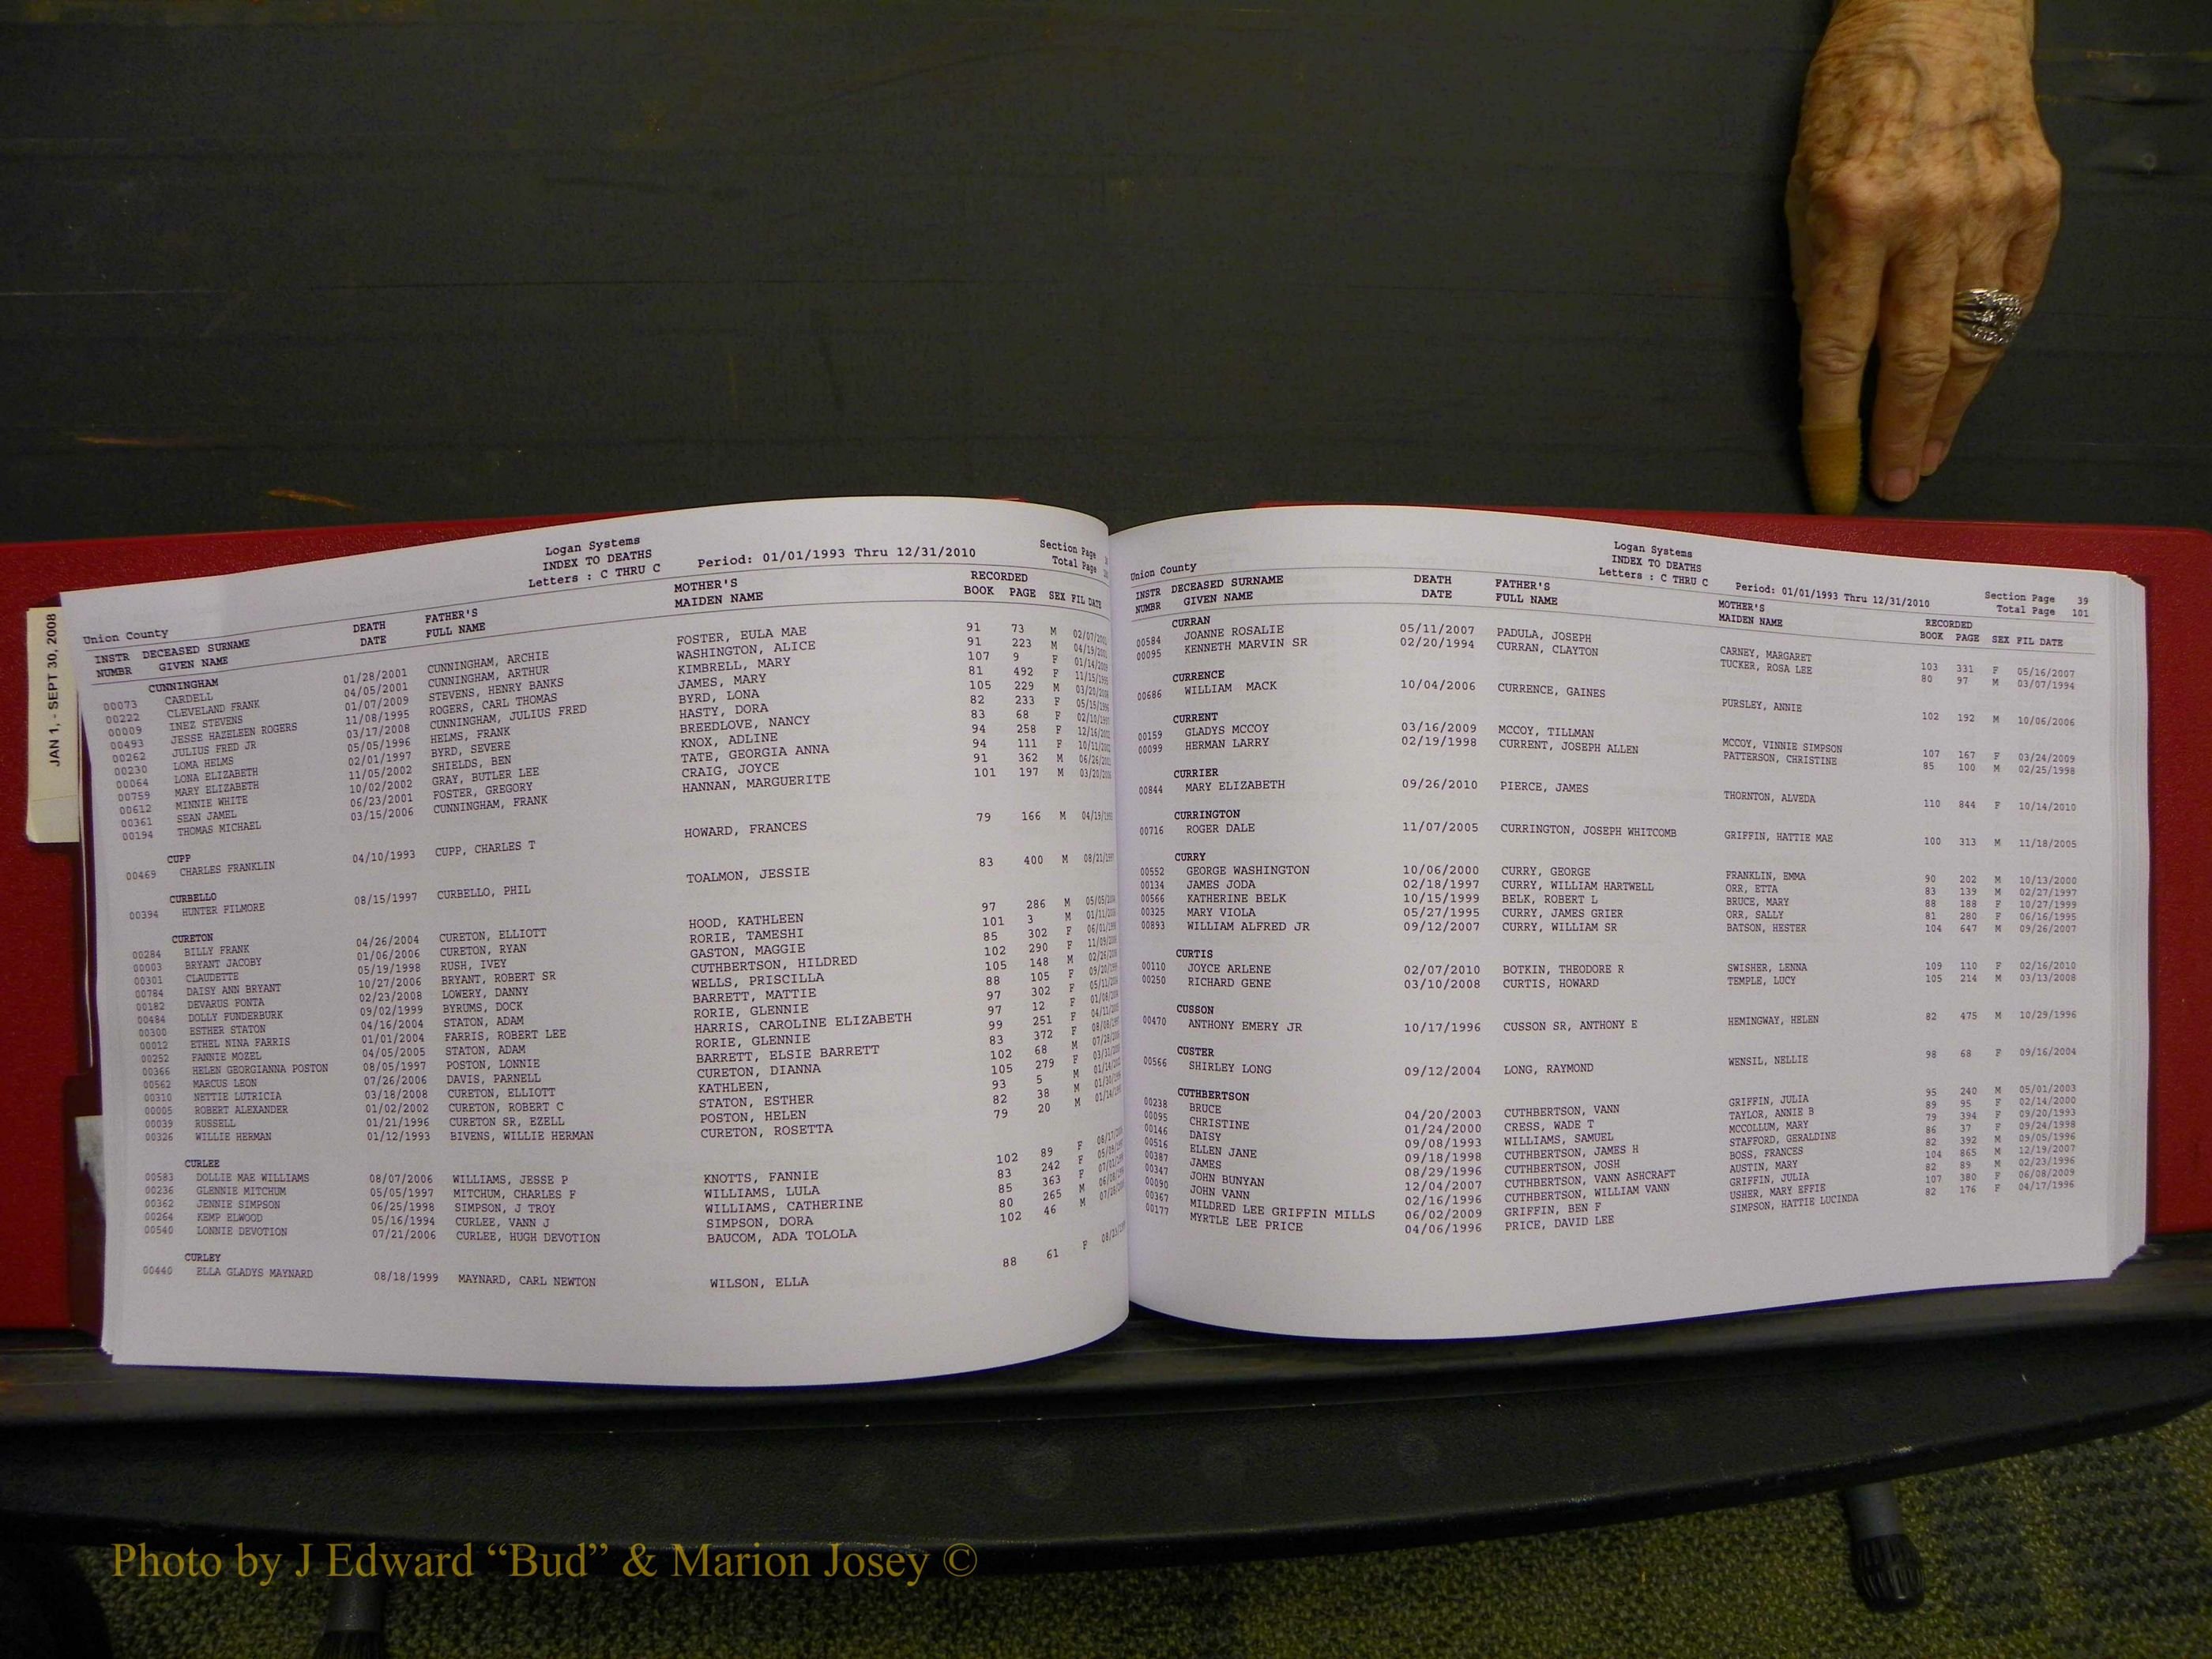 JAN 1, - SEPT 30, 2008
Logan Systems
INDEX TO DEATHS
Letters : C THRU C Period: 01/01/1993 Thru 12/31/2010
Section Page
Total Page
Union County
INSTR DECEASED SURNAME DEATH FATHER'S MOTHER'S RECORDED
NUMBR GIVEN NAME DATE FULL NAME MAIDEN NAME BOOK PAGE SEX FIL DATE
CUNNINGHAM
00073 CARDELL 01/28/2001 CUNNINGHAM, ARCHIE FOSTER, EULA MAE 91 73 M
00222 CLEVELAND FRANK 04/05/2001 CUNNINGHAM, ARTHUR WASHINGTON, ALICE 91 223 M
00009 INEZ STEVENS 01/07/2009 STEVENS, HENRY BANKS KIMBRELL, MARY 107 9 F
00493 JESSE HAZELEEN ROGERS 11/08/1995 ROGERS, CARL THOMAS JAMES, MARY 81 492 F
00262 JULIUS FRED JR 03/17/2008 CUNNINGHAM, JULIUS FRED BYRD, LONA 105 229 M
00230 LOMA HELMS 05/05/1996 HELMS, FRANK HASTY, DORA 82 233 F
00064 LONA ELIZABETH 02/01/1997 BYRD, SEVERE BREEDLOVE, NANCY 83 68 F
00759 MARY ELIZABETH 11/05/2002 SHIELDS, BEN KNOX, ADLINE 94 258 F
00612 MINNIE WHITE 10/02/2002 GRAY, BUTLER LEE TATE, GEORGIA ANNA 94 111 F
00361 SEAN JAMEL 06/23/2001 FOSTER, GREGORY CRAIG, JOYCE 91 362 M
00194 THOMAS MICHAEL 03/15/2006 CUNNINGHAM, FRANK HANNAN, MARGUERITE 101 197 M
CUPP
00469 CHARLES FRANKLIN 04/10/1993 CUPP, CHARLES T HOWARD, FRANCES 79 166 M
CURBELLO
00394 HUNTER FILMORE 08/15/1997 CURBELLO, PHIL TOALMON, JESSIE 83 400 M
CURETON
00284 BILLY FRANK 04/26/2004 CURETON, ELLIOTT HOOD, KATHLEEN 97 286 M
00003 BRYANT JACOBY 01/06/2006 CURETON, RYAN RORIE, TAMESHI 101 3 M
00301 CLAUDETTE 05/19/1998 RUSH, IVEY GASTON, MAGGIE 85 302 F
00784 DAISY ANN BRYANT 10/27/2006 BRYANT, ROBERT SR CUTHBERTSON, HILDRED 102 290 F
00182 DEVARUS FONTA 02/23/2008 LOWERY, DANNY WELLS, PRISCILLA 105 148 M
00484 DOLLY FUNDERBURK 09/02/1999 BYRUMS, DOCK BARRETT, MATTIE 88 105 F
00300 ESTHER STATON 04/16/2004 STATON, ADAM RORIE, GLENNIE 97 302 F
00012 ETHEL NINA FARRIS 01/01/2004 FARRIS, ROBERT LEE HARRIS, CAROLINE ELIZABETH 97 12 F
00252 FANNIE MOZEL 04/05/2005 STATON, ADAM RORIE, GLENNIE 99 251 F
00366 HELEN GEORGIANNA POSTON 08/05/1997 POSTON, LONNIE BARRETT, ELSIE BARRETT 83 372 F
00562 MARCUS LEON 07/26/2006 DAVIS, PARNELL CURETON, DIANNA 102 68 M
00310 NETTIE LUTRICIA 03/18/2008 CURETON, ELLIOTT KATHLEEN, 105 279 F
00005 ROBERT ALEXANDER 01/02/2002 CURETON, ROBERT C STATON, ESTHER 93 5 M
00039 RUSSELL 01/21/1996 CURETON SR, EZELL POSTON, HELEN 82 38 M
00326 WILLIE HERMAN 01/12/1993 BIVENS, WILLIE HERMAN CURETON, ROSETTA 79 20 M
CURLEE
00583 DOLLIE MAE WILLIAMS 08/07/2006 WILLIAMS, JESSE P KNOTTS, FANNIE 102 89 F
00236 GLENNIE MITCHUM 05/05/1997 MITCHUM, CHARLES F WILLIAMS, LULA 83 242 F
00362 JENNIE SIMPSON 06/25/1998 SIMPSON, J TROY WILLIAMS, CATHERINE 85 363 F
00264 KEMP ELWOOD 05/16/1994 CURLEE, VANN J SIMPSON, DORA 80 265 M
00540 LONNIE DEVOTION 07/21/2006 CURLEE, HUGH DEVOTION BAUCOM, ADA TOLOLA 102 46 M
CURLEY
00440 ELLA GLADYS MAYNARD 08/18/1999 MAYNARD, CARL NEWTON WILSON, ELLA 88 61 F
Logan Systems
INDEX TO DEATHS
Letters : C THRU C Period: 01/01/1993 Thru 12/31/2010
Section Page 39
Total Page 101
Union County
INSTR DECEASED SURNAME DEATH FATHER'S MOTHER'S RECORDED
NUMBR GIVEN NAME DATE FULL NAME MAIDEN NAME BOOK PAGE SEX FIL DATE
CURRAN
00584 JOANNE ROSALIE 05/11/2007 PADULA, JOSEPH CARNEY, MARGARET 103 331 F 05/16/2007
00095 KENNETH MARVIN SR 02/20/1994 CURRAN, CLAYTON TUCKER, ROSA LEE 80 97 M 03/07/1994
CURRENCE
00686 WILLIAM MACK 10/04/2006 CURRENCE, GAINES PURSLEY, ANNIE 102 192 M 10/06/2006
CURRENT
00159 GLADYS MCCOY 03/16/2009 MCCOY, TILLMAN MCCOY, VINNIE SIMPSON 107 167 F 03/24/2009
00099 HERMAN LARRY 02/19/1998 CURRENT, JOSEPH ALLEN PATTERSON, CHRISTINE 85 100 M 02/25/1998
CURRIER
00844 MARY ELIZABETH 09/26/2010 PIERCE, JAMES THORNTON, ALVEDA 110 844 F 10/14/2010
CURRINGTON
00716 ROGER DALE 11/07/2005 CURRINGTON, JOSEPH WHITCOMB GRIFFIN, HATTIE MAE 100 313 M 11/18/2005
CURRY
00552 GEORGE WASHINGTON 10/06/2000 CURRY, GEORGE FRANKLIN, EMMA 90 202 M 10/13/2000
00134 JAMES JODA 02/18/1997 CURRY, WILLIAM HARTWELL ORR, ETTA 83 139 M 02/27/1997
00566 KATHERINE BELK 10/15/1999 BELK, ROBERT L BRUCE, MARY 88 188 F 10/27/1999
00325 MARY VIOLA 05/27/1995 CURRY, JAMES GRIER ORR, SALLY 81 280 F 06/16/1995
00893 WILLIAM ALFRED JR 09/12/2007 CURRY, WILLIAM SR BATSON, HESTER 104 647 M 09/26/2007
CURTIS
00110 JOYCE ARLENE 02/07/2010 BOTKIN, THEODORE R SWISHER, LENNA 109 110 F 02/16/2010
00250 RICHARD GENE 03/10/2008 CURTIS, HOWARD TEMPLE, LUCY 105 214 M 03/13/2008
CUSSON
00470 ANTHONY EMERY JR 10/17/1996 CUSSON SR, ANTHONY E HEMINGWAY, HELEN 82 475 M 10/29/1996
CUSTER
00566 SHIRLEY LONG 09/12/2004 LONG, RAYMOND WENSIL, NELLIE 98 68 F 09/16/2004
CUTHBERTSON
00238 BRUCE 04/20/2003 CUTHBERTSON, VANN GRIFFIN, JULIA 95 240 M 05/01/2003
00095 CHRISTINE 01/24/2000 CRESS, WADE T TAYLOR, ANNIE B 89 95 F 02/14/2000
00146 DAISY 09/08/1993 WILLIAMS, SAMUEL MCCOLLUM, MARY 79 394 F 09/20/1993
00516 ELLEN JANE 09/18/1998 CUTHBERTSON, JAMES H STAFFORD, GERALDINE 86 37 F 09/24/1998
00387 JAMES 08/29/1996 CUTHBERTSON, JOSH BOSS, FRANCES 82 392 M 09/05/1996
00347 JOHN BUNYAN 12/04/2007 CUTHBERTSON, VANN ASHCRAFT AUSTIN, MARY 104 865 M 12/19/2007
00090 JOHN VANN 02/16/1996 CUTHBERTSON, WILLIAM VANN GRIFFIN, JULIA 82 89 M 02/23/1996
00367 MILDRED LEE GRIFFIN MILLS 06/02/2009 GRIFFIN, BEN F USHER, MARY EFFIE 107 380 F 06/08/2009
00177 MYRTLE LEE PRICE 04/06/1996 PRICE, DAVID LEE SIMPSON, HATTIE LUCINDA 82 176 F 04/17/1996
Photo by J Edward “Bud” & Marion Josey ©